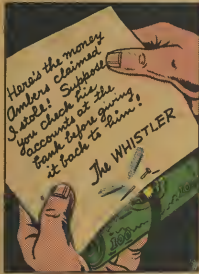 Here's the money
Ambers claimed
I stole! Suppose
you check his
accounts at the
bank before giving
it back to him!
The WHISTLER
100